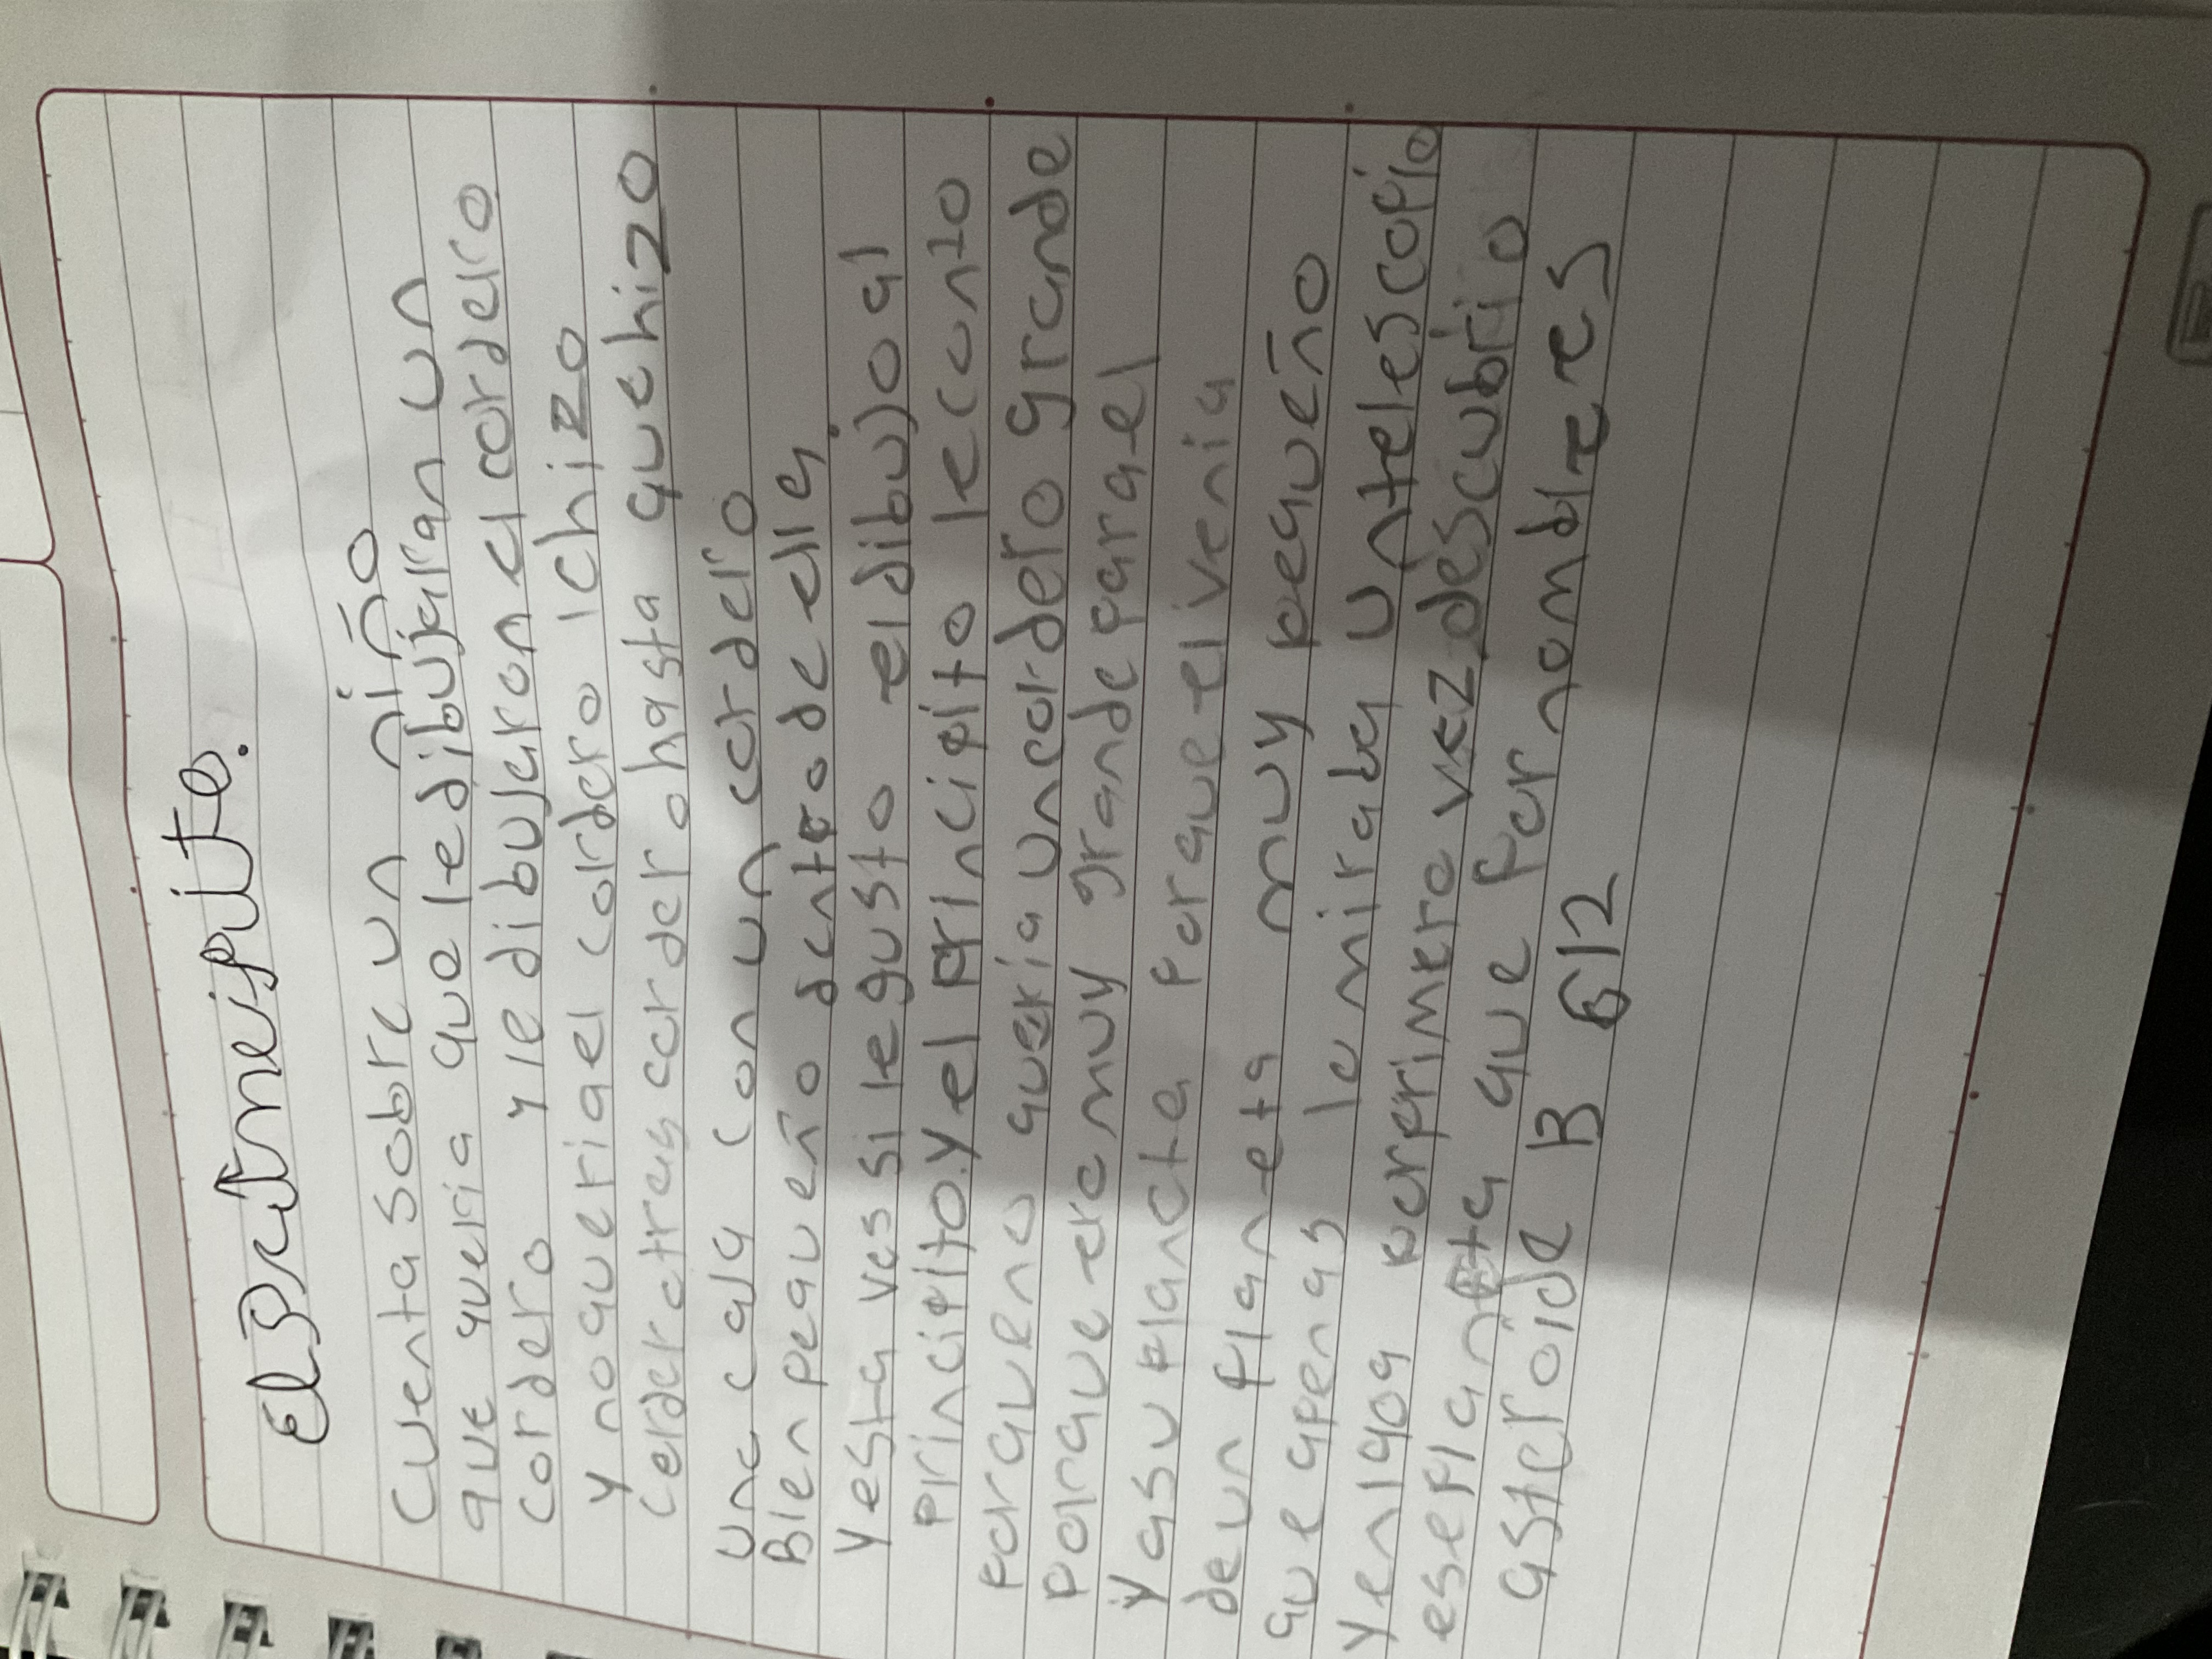 El principito.
Cuenta sobre un niño
que queria que le dibujaran un
cordero y le dibujaron el cordero
y no queria el cordero lchizo
cordero tras cordero hasta que hizo
una caja con un cordero
Bien pequeño dentro de ella.
y esta ves si le gusto el dibujo al
principito. y el principito le conto
porque no queria un cordero grande
porque era muy grande para el
y a su planeta porque el venia
de un planeta muy pequeño
que apenas lo miraba un telescopio
y en 1909 por primera vez descubrio
ese planeta que por nombre es
asteroide B 612